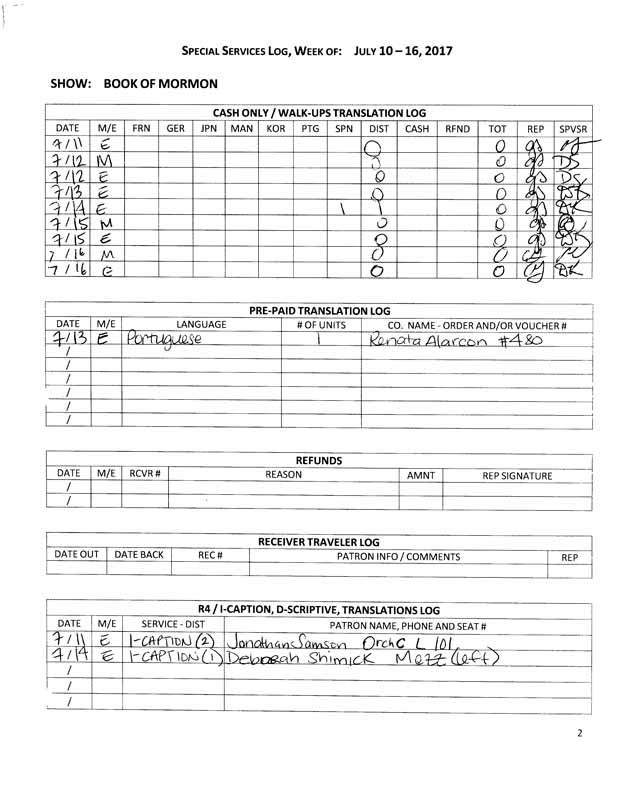 SPECIAL SERVICES LOG, WEEK OF: JULY 10 – 16, 2017
SHOW: BOOK OF MORMON
CASH ONLY / WALK-UPS TRANSLATION LOG
DATE M/E FRN GER JPN MAN KOR PTG SPN DIST CASH RFND TOT REP SPVSR
7/11 E 0 0
7/12 M 0 0 DS
7/12 E 0 0 DS
7/13 E 0 0
7/14 E \ 1 0
7/15 M 0 0
7/15 E 0 0
7/16 M 0 0
7/16 E 0 0
PRE-PAID TRANSLATION LOG
DATE M/E LANGUAGE # OF UNITS CO. NAME - ORDER AND/OR VOUCHER #
7/13 E Portuguese 1 Renata Alarcon #480
/
/
/
/
/
/
REFUNDS
DATE M/E RCVR # REASON AMNT REP SIGNATURE
/
/
RECEIVER TRAVELER LOG
DATE OUT DATE BACK REC # PATRON INFO / COMMENTS REP
R4 / I-CAPTION, D-SCRIPTIVE, TRANSLATIONS LOG
DATE M/E SERVICE - DIST PATRON NAME, PHONE AND SEAT #
7/11 E I-CAPTION (2) Jonathan Samson Orch C L 101
7/14 E I-CAPTION (1) Deborah Shimick Mezz (left)
/
/
/
2